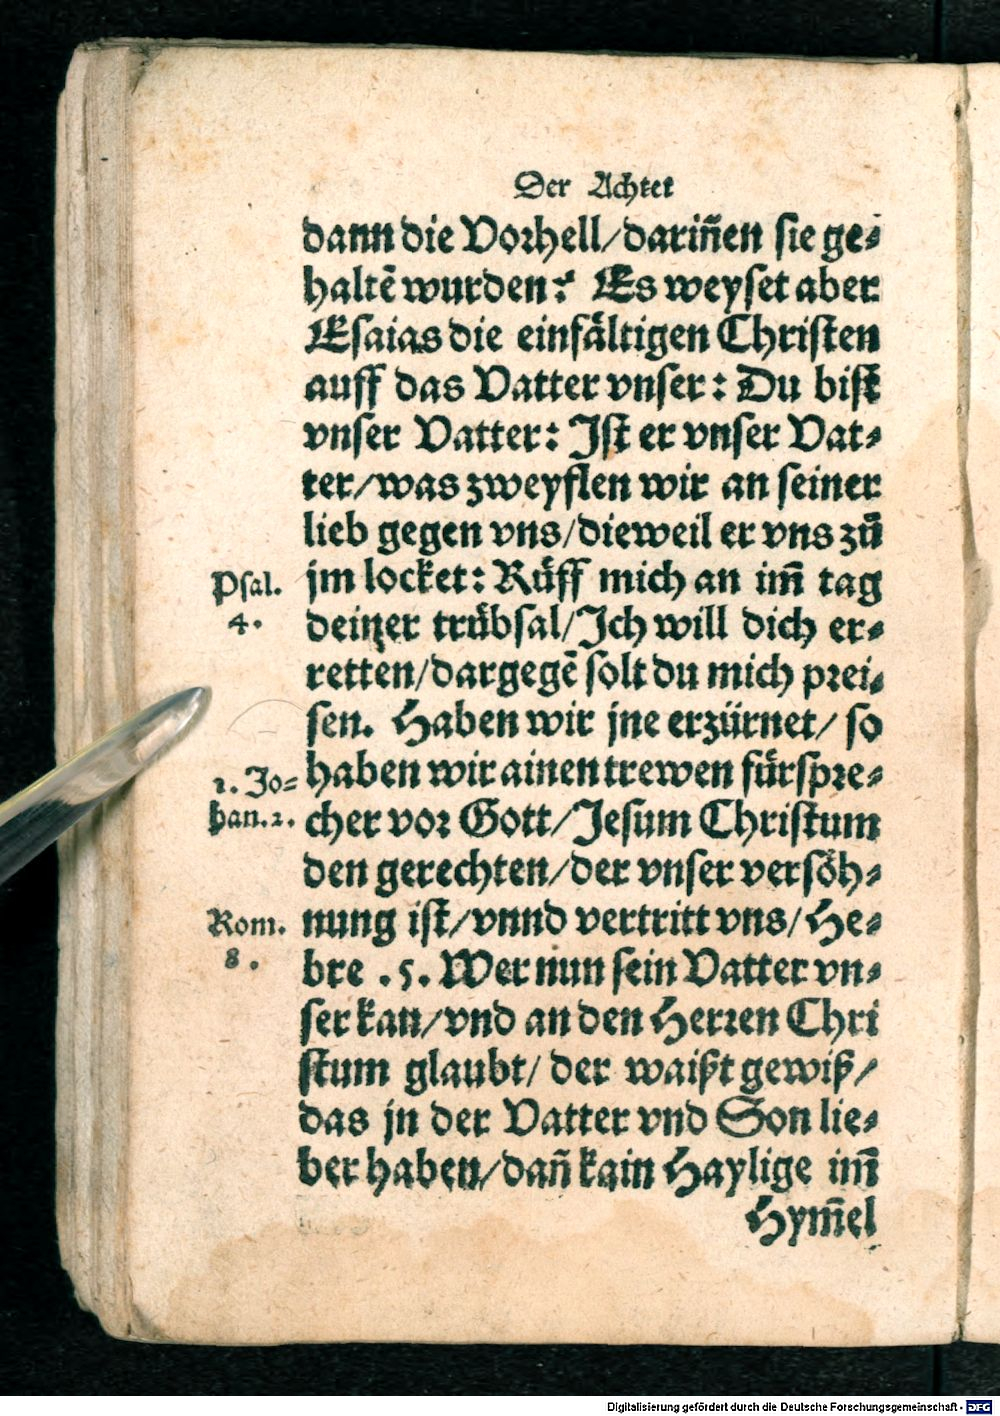 Der Achtet
dann die Vorhell/dariñen sie ge-
haltẽ wurden? Es weyset aber
Esaias die einfältigen Christen
auff das Vatter vnser: Du bist
vnser Vatter: Ist er vnser Vat-
ter/was zweyflen wir an seiner
lieb gegen vns/dieweil er vns zů
Psal. jm locket: Růff mich an im̃ tag
4. deiner trübsal/Ich will dich er-
retten/dargegẽ solt du mich prei-
sen. Haben wir jne erzürnet/ so
1. Jo= haben wir ainen trewen fürspre-
han.2. cher vor Gott/Jesum Christum
den gerechten/der vnser versöh-
Rom. nung ist/vnnd vertritt vns/He-
8. bre .5. Wer nun sein Vatter vn-
ser kan/vnd an den Herren Chri
stum glaubt/ der waißt gewiß/
das jn der Vatter vnd Son lie-
ber haben/dañ kain Haylige im̃
Hym̃el
Digitalisierung gefördert durch die Deutsche Forschungsgemeinschaft - DFG